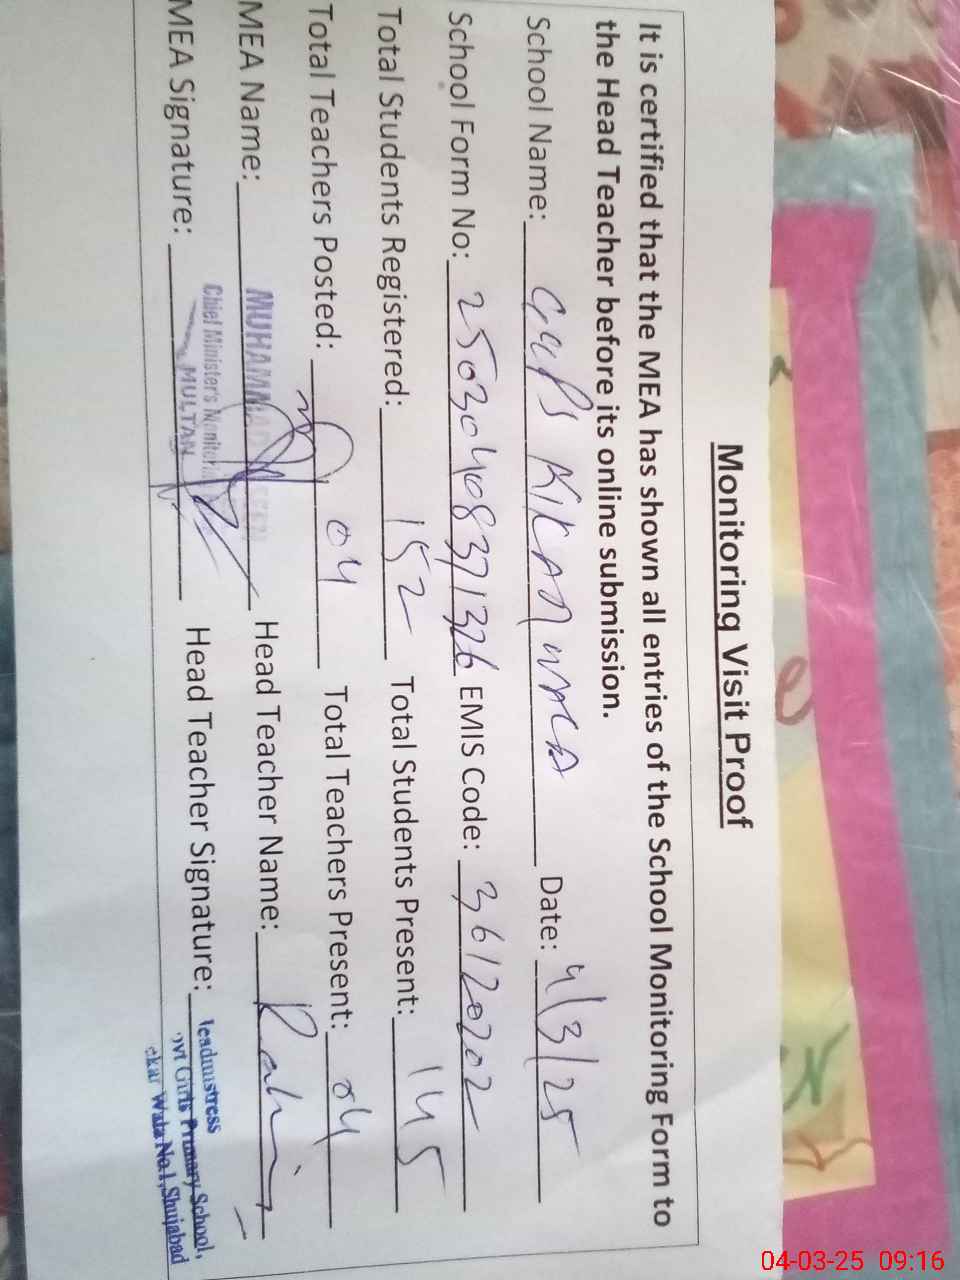 Monitoring Visit Proof
It is certified that the MEA has shown all entries of the School Monitoring Form to
the Head Teacher before its online submission.
School Name: GGPS Date: 4/3/25
School Form No: 25030408371326 EMIS Code: 36120202
Total Students Registered: 152 Total Students Present: 145
Total Teachers Posted: 04 Total Teachers Present: 04
MEA Name: MUHAMMAD Head Teacher Name:
Chief Minister's Monitoring
MULTAN
MEA Signature: Head Teacher Signature:
leadmistress
ovt Girls Primary School,
ekar Wala No.1, Shujabad
04-03-25 09:16